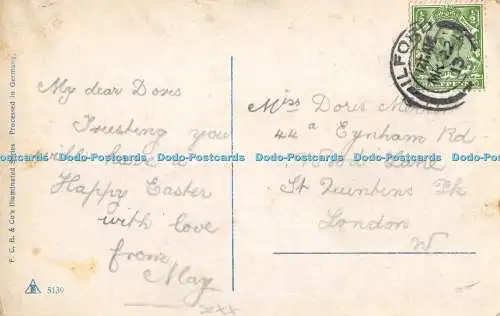 My dear Doris
Trusting you
will have a
Happy Easter
with love
from
May
xxx
Miss Doris
44a Eynham Rd
Lane
St Quintins Pk
London
W
ILFORD
F. C. B. & Co's Illuminated Processed in Germany.
5139
Dodo-Postcards Dodo-Postcards Dodo-Postcards Dodo-Postcards Dodo-Postcards